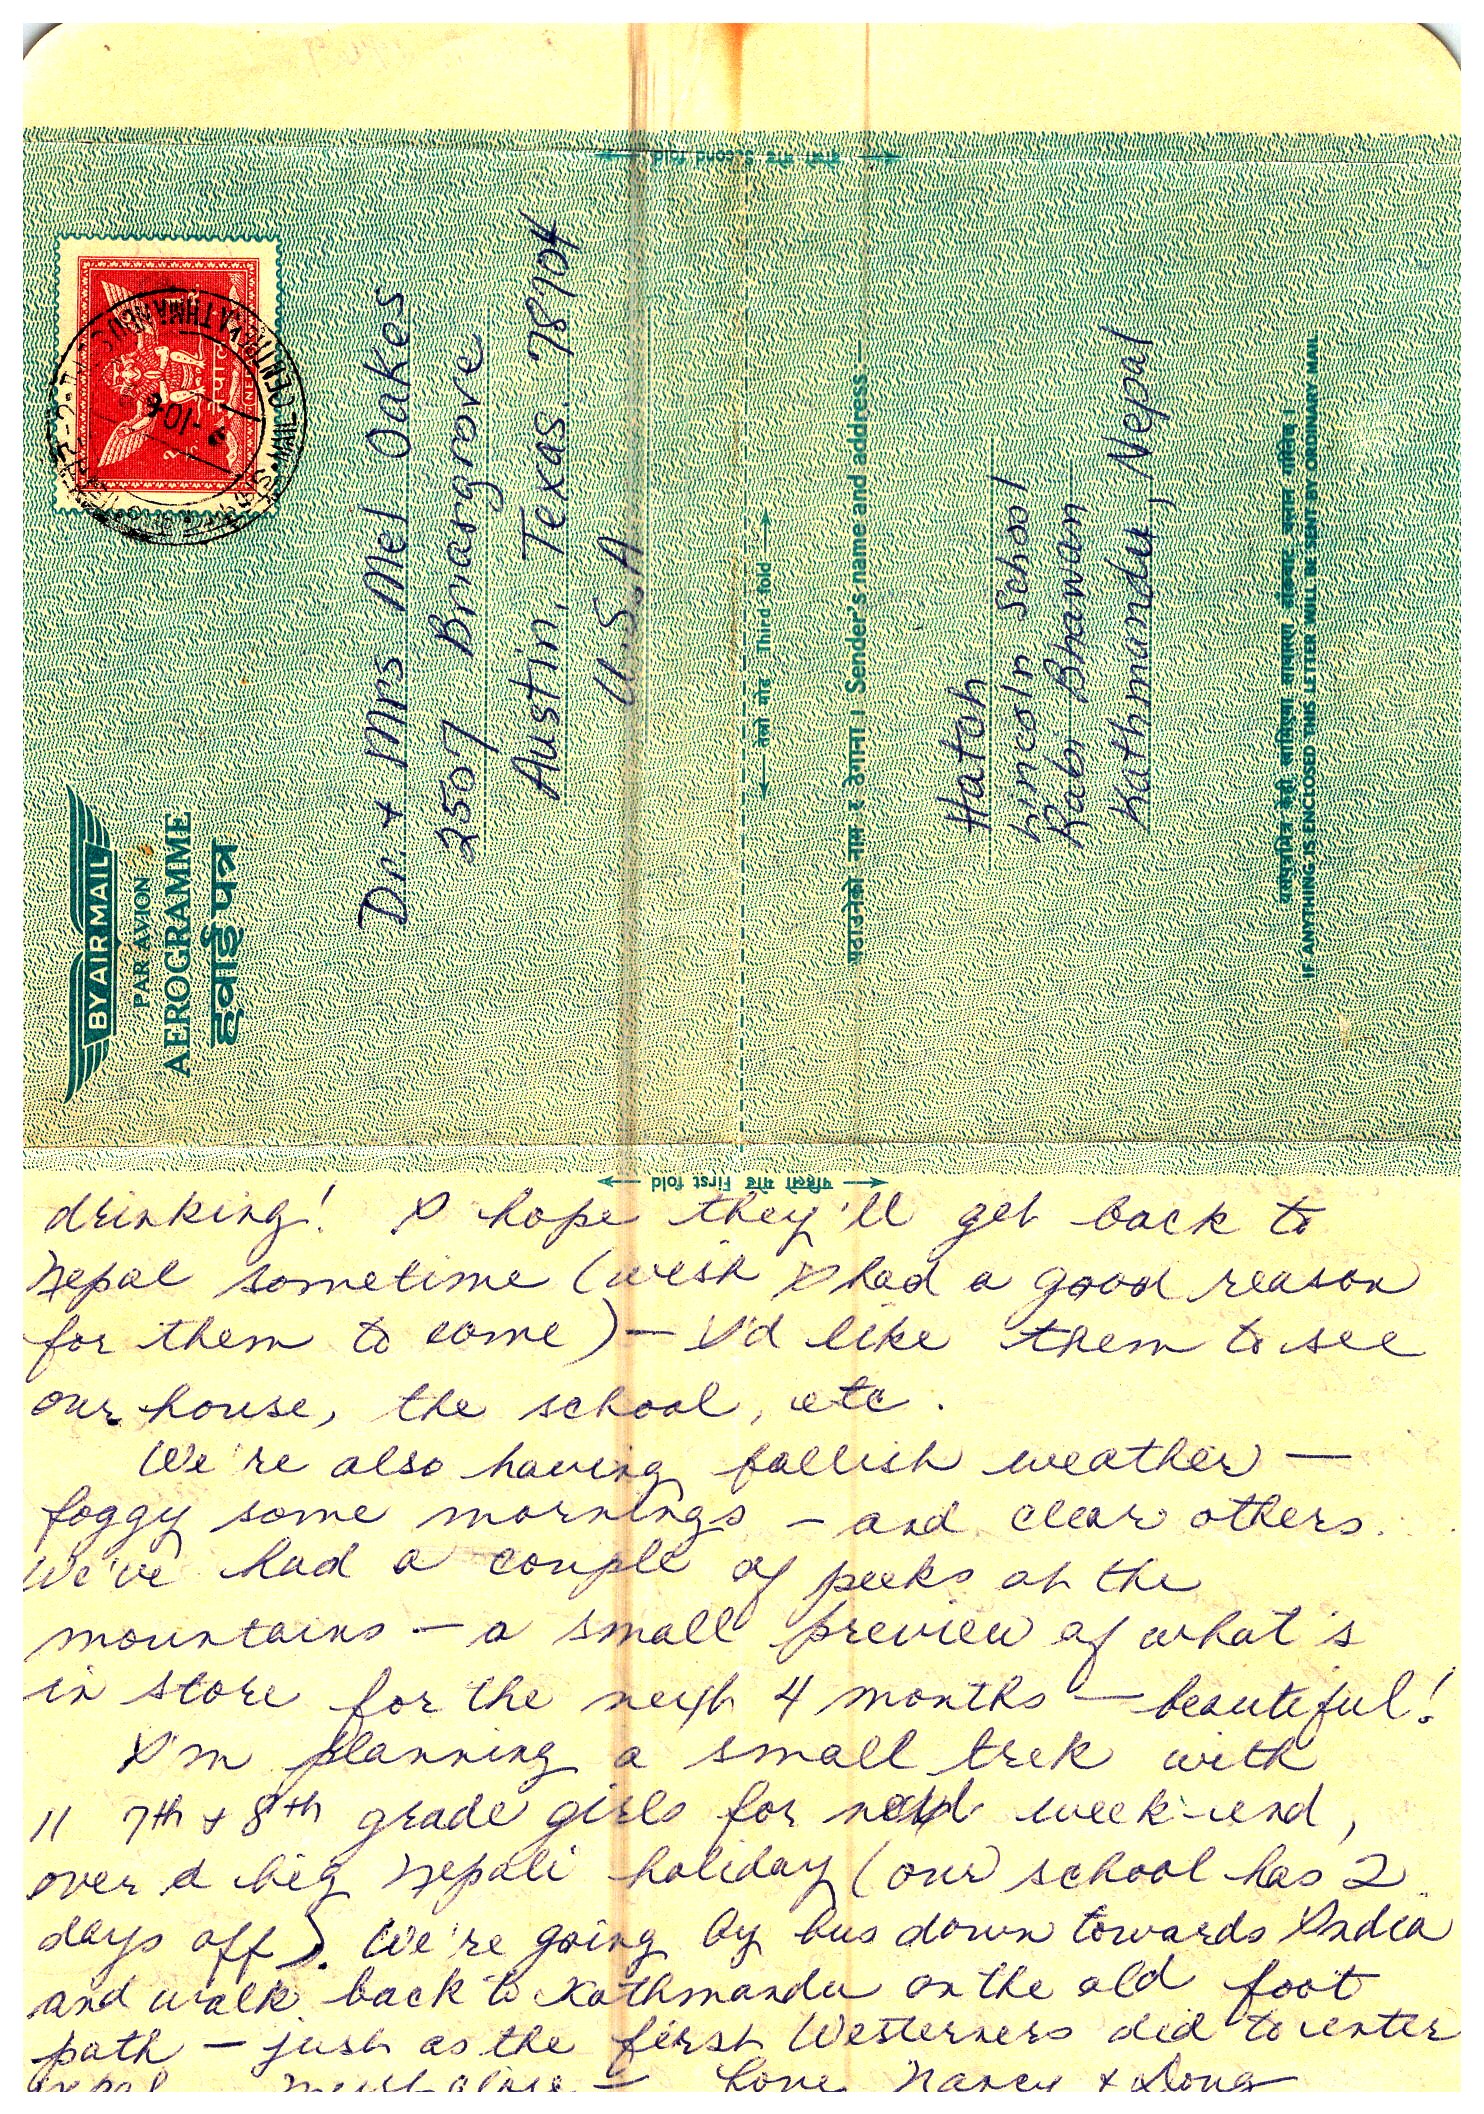 दोस्रो मोड Second fold
नेपाल
NEPAL
KATHMANDU
BY AIR MAIL
PAR AVION
AEROGRAMME
हवाई पत्र
Dr. + Mrs Mel Oakes
2507 Briargrove
Austin, Texas. 78704
U.S.A
तेस्रो मोड Third fold
पठाउनेको नाम र ठेगाना। Sender's name and address:—
Hatch
Lincoln School
Rabi Bhawan
Kathmandu, Nepal
IF ANYTHING IS ENCLOSED THIS LETTER WILL BE SENT BY ORDINARY MAIL
पहिलो मोड First fold
drinking! I hope they'll get back to
Nepal sometime (wish I had a good reason
for them to come) — I'd like them to see
our house, the school, etc.
We're also having fallish weather —
foggy some mornings — and clear others.
We've had a couple of peeks at the
mountains — a small preview of what's
in store for the next 4 months — beautiful!
I'm planning a small trek with
11 7th + 8th grade girls for next week-end,
over a big Nepali holiday (our school has 2
days off). We're going by bus down towards India
and walk back to Kathmandu on the old foot
path — just as the first Westerners did to enter
Nepal. — Love, Nancy + Doug